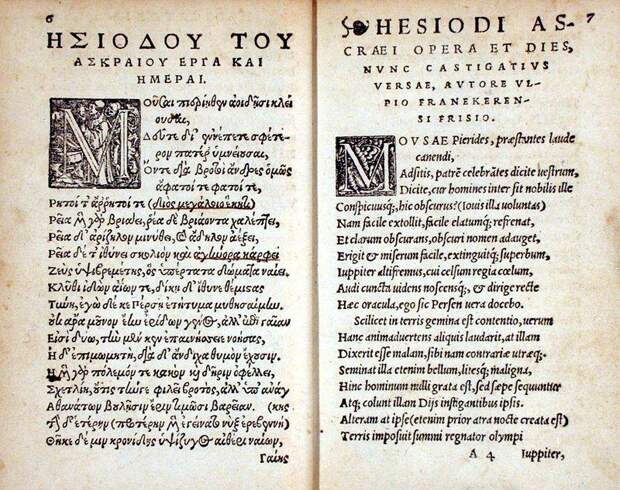 6
ΗΣΙΟΔΟΥ ΤΟΥ
ΑΣΚΡΑΙΟΥ ΕΡΓΑ ΚΑΙ
ΗΜΕΡΑΙ.
ΜΟῦσαι πιερίηθεν ἀοιδῇσι κλεί
ουσαι,
Δεῦτε δὴ ἐννέπετε σφέτε-
ρον πατέρ' ὑμνείουσαι,
Ὅντε διὰ βροτοὶ ἄνδρες ὁμῶς
ἄφατοί τε φατοί τε,
Ῥητοί τ' ἄρρητοί τε (διὸς μεγάλοιο ἕκητι)
Ῥέα μὲν γὰρ βριάει, ῥέα δὲ βριάοντα χαλέπτει,
Ῥεῖα δ' ἀρίζηλον μινύθει, καὶ ἄδηλον ἀέξει,
Ῥεῖα δέ τ' ἰθύνει σκολιὸν καὶ ἀγήνορα κάρφει
Ζεὺς ὑψιβρεμέτης, ὃς ὑπέρτατα δώματα ναίει.
Κλῦθι ἰδὼν ἀΐων τε, δίκῃ δ' ἴθυνε θέμιστας
Τύνη, ἐγὼ δέ κε Πέρσῃ ἐτήτυμα μυθησαίμην.
Οὐκ ἄρα μοῦνον ἔην ἐρίδων γένος, ἀλλ' ἐπὶ γαῖαν
Εἰσὶ δύω, τὴν μέν κεν ἐπαινήσειε νοήσας,
Ἡ δ' ἐπιμωμητή, διὰ δ' ἄνδιχα θυμὸν ἔχουσιν.
Ἡ μὲν γὰρ πόλεμόν τε κακὸν καὶ δῆριν ὀφέλλει,
Σχετλίη, οὔτις τήνγε φιλεῖ βροτός, ἀλλ' ὑπ' ἀνάγ
Ἀθανάτων βουλῇσιν ἔριν τιμῶσι βαρεῖαν. (κης
Τὴν δ' ἑτέρην (προτέρην μὲν ἐγείνατο νὺξ ἐρεβεννή)
Θῆκε δέ μιν κρονίδης ὑψίζυγος αἰθέρι ναίων,
Γαίης
7
HESIODI AS-
CRAEI OPERA ET DIES,
NVNC CASTIGATIVS
VERSAE, AVTORE VL-
PIO FRANEKEREN-
SI FRISIO.
MOVSAE Pierides, præstantes laude
canendi,
Adsitis, patrē celebrātes dicite uestrum,
Dicite, cur homines inter sit nobilis ille
Conspicuusq;, hic obscurus? (Iouis illa uoluntas)
Nam facile extollit, facile elatumq; refrenat,
Et clarum obscurans, obscuri nomen adauget,
Erigit & miserum facile, extinguitq; superbum,
Iuppiter altifremus, cui celsum regia cœlum,
Audi cuncta uidens noscensq;, & dirige recte
Hæc oracula, ego sic Persen uera docebo.
Scilicet in terris gemina est contentio, uerum
Hanc animaduertens aliquis laudarit, at illam
Dixerit esse malam, sibi nam contrariæ utræq;.
Seminat illa etenim bellum, litesq; maligna,
Hinc hominum nulli grata est, sed sæpe sequuntur
Atq; colunt illam Dijs instigantibus ipsis.
Alteram at ipse (etenim prior atra nocte creata est)
Terris imposuit summi regnator olympi
A 4 Iuppiter,